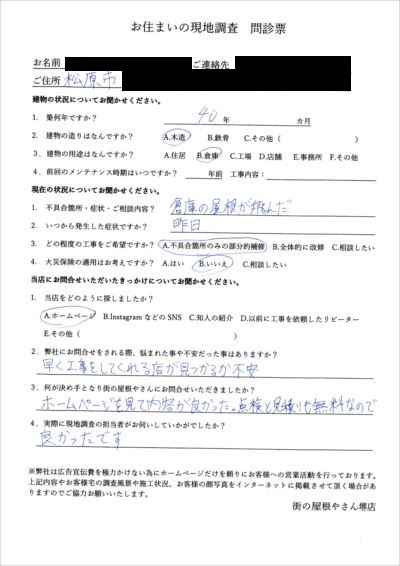 お住まいの現地調査 問診票
お名前 ご連絡先
ご住所 松原市
建物の状況についてお聞かせください。
1. 築何年ですか? 40 年 カ月
2. 建物の造りはなんですか? A.木造 B.鉄骨 C.その他（ ）
3. 建物の用途はなんですか? A.住居 B.倉庫 C.工場 D.店舗 E.事務所 F.その他
4. 前回のメンテナンス時期はいつですか? 年前 工事内容:
現在の状況についてお聞かせください。
1. 不具合箇所・症状・ご相談内容? 倉庫の屋根が飛んだ
2. いつから発生した症状ですか? 昨日
3. どの程度の工事をご希望ですか? A.不具合箇所のみの部分的補修 B.全体的に改修 C.相談したい
4. 火災保険の適用はお考えですか? A.はい B.いいえ C.相談したい
当店にお問合せいただいたきっかけについてお聞かせください。
1. 当店をどのように探しましたか?
A.ホームページ B.InstagramなどのSNS C.知人の紹介 D.以前に工事を依頼したリピーター
E.その他（ ）
2. 弊社にお問合せをされる際、悩まれた事や不安だった事はありますか?
早く工事をしてくれる店が見つかるか不安
3. 何が決め手となり街の屋根やさんにお問合せいただきましたか?
ホームページを見て内容が良かった。点検と見積りも無料なので
4. 実際に現地調査の担当者がお伺いしていかがでしたか?
良かったです
※弊社は広告宣伝費を極力かけない為にホームページだけを頼りにお客様への営業活動を行っております。
上記内容やお客様宅の調査風景や施工状況、お客様の顔写真をインターネットに掲載させて頂く場合が
ありますのでご協力お願いいたします。
街の屋根やさん堺店